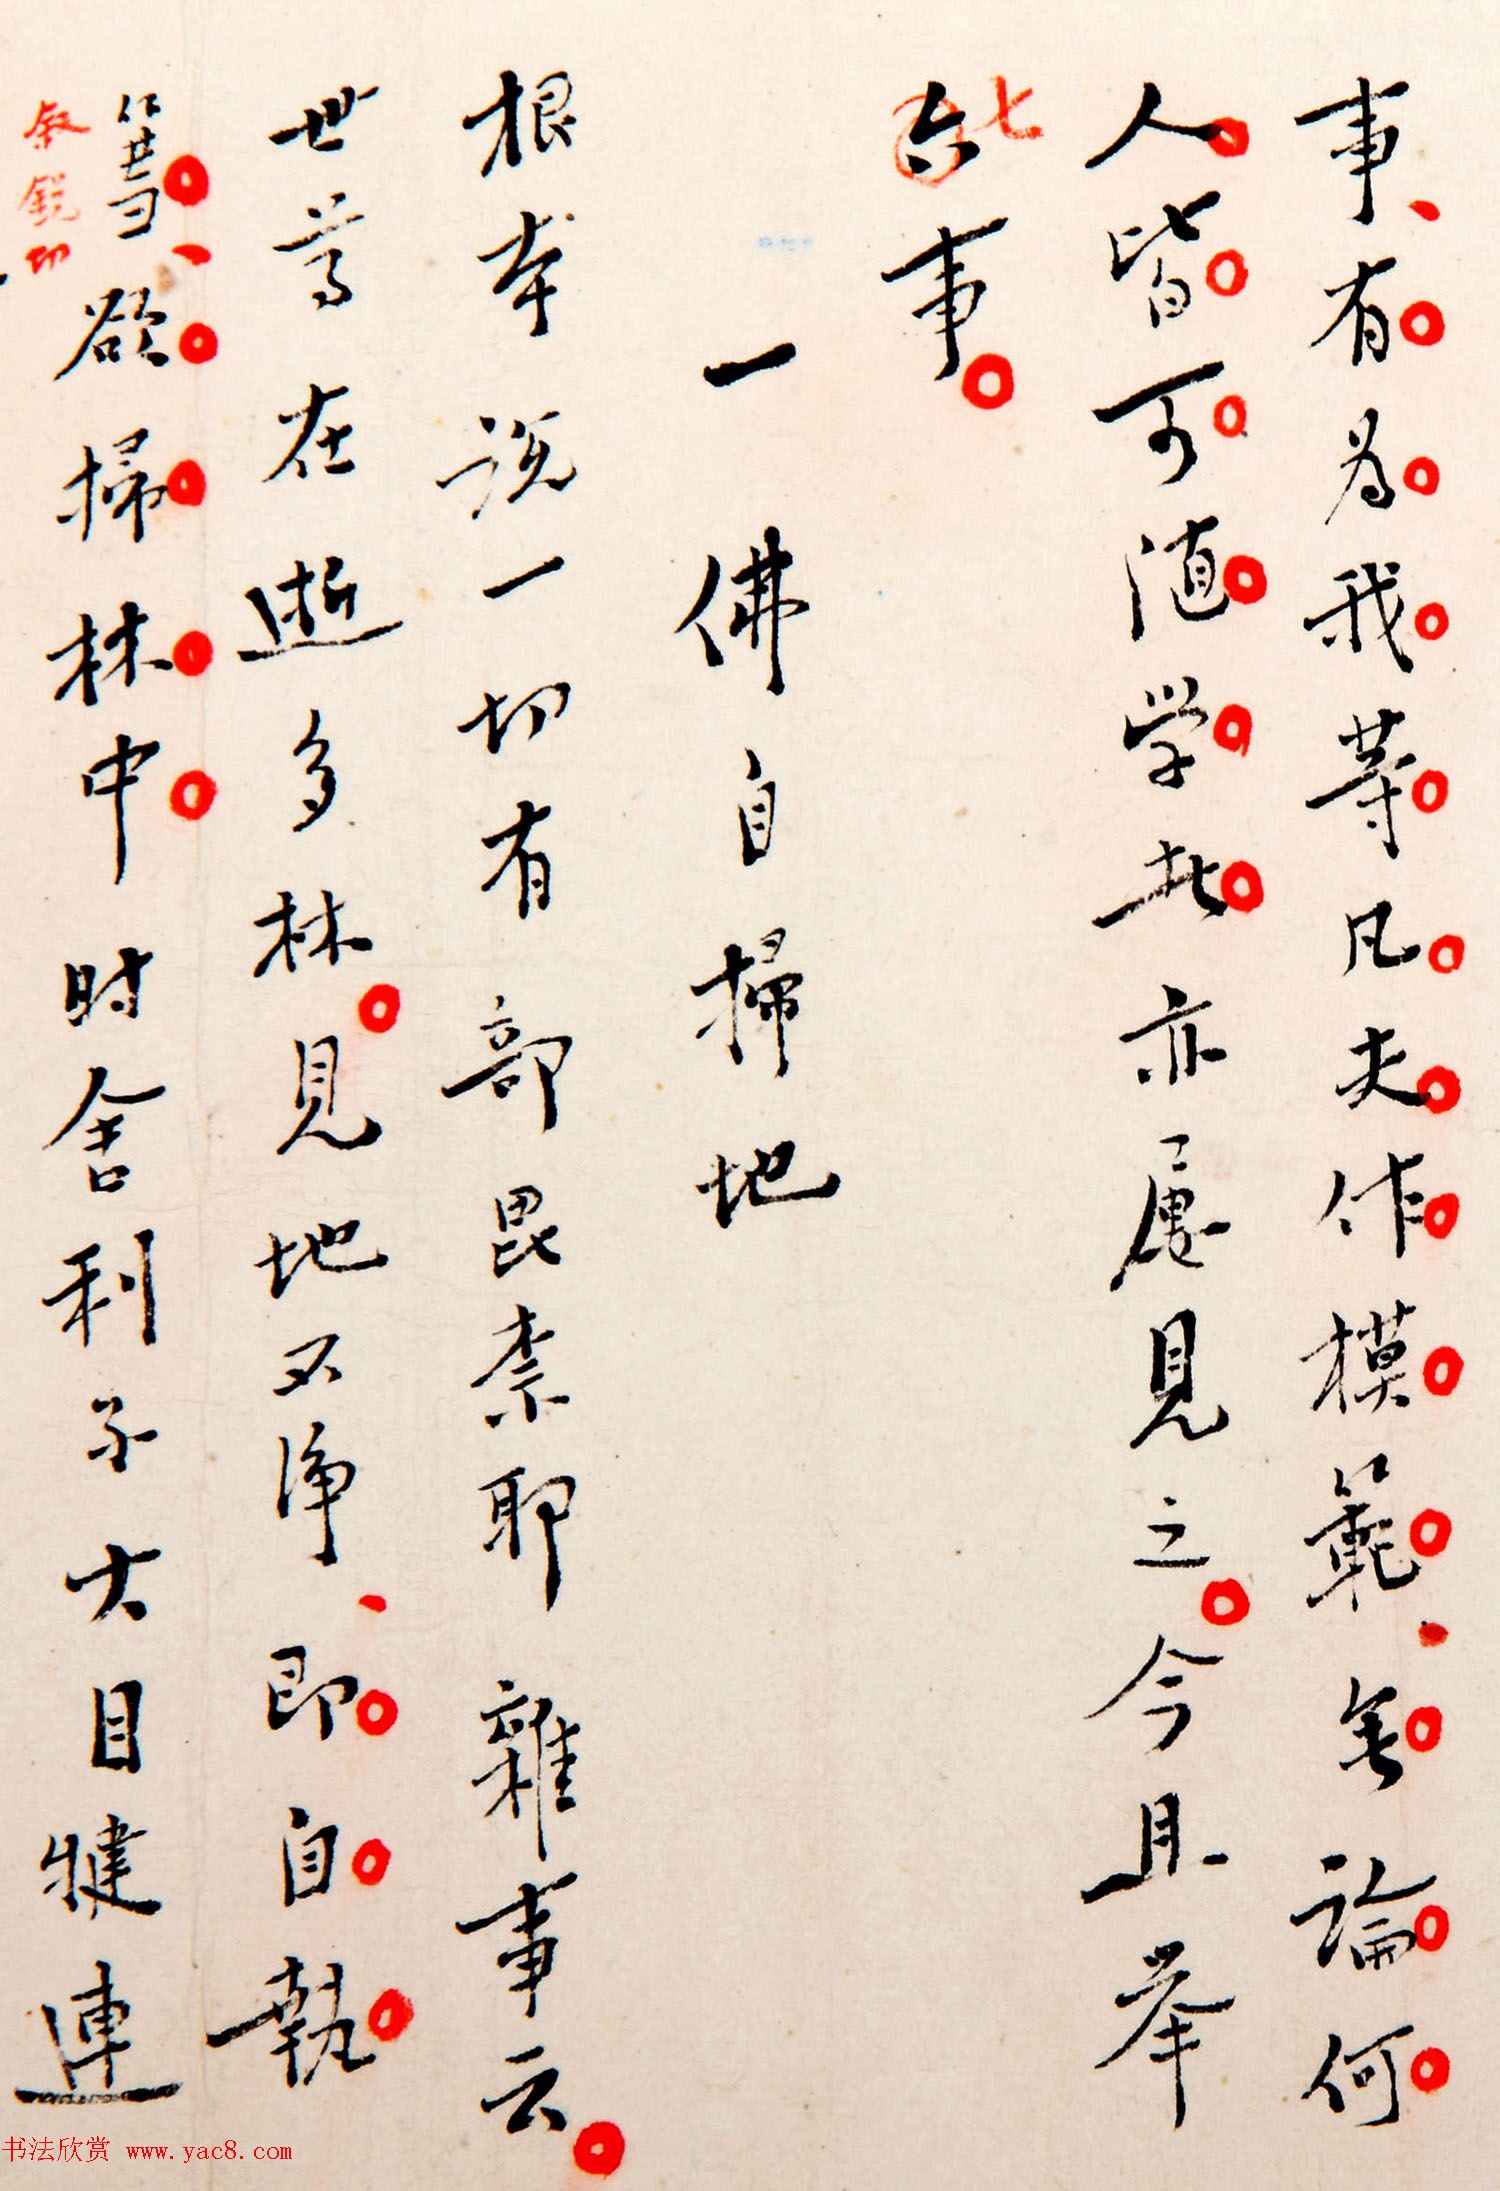 事、有为我等凡夫作模範、无論何
人皆可随学此亦屬見之。今且举
七事。
一 佛自掃地
根本説一切有部毘柰耶雜事云。
世尊在逝多林。見地不淨、即自執
篲、欲掃林中时舍利子大目犍連
叙鋭切
书法欣赏 www.yac8.com